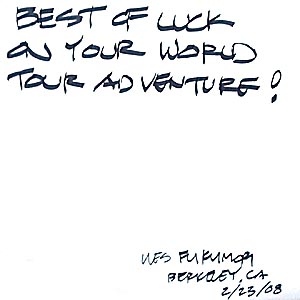 BEST OF LUCK
ON YOUR WORLD
TOUR ADVENTURE!
WES FUKUMORI
BERKELEY, CA
2/23/08